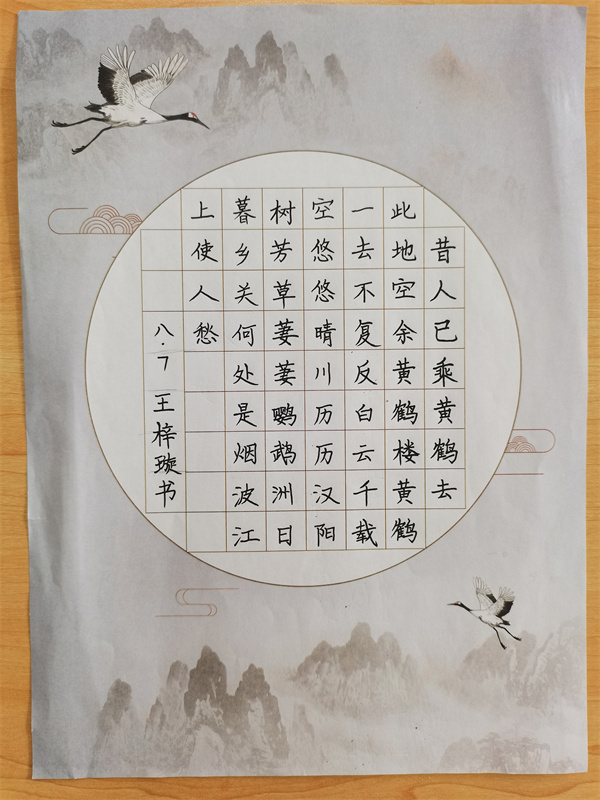 昔人已乘黄鹤去
此地空余黄鹤楼黄鹤
一去不复反白云千载
空悠悠晴川历历汉阳
树芳草萋萋鹦鹉洲日
暮乡关何处是烟波江
上使人愁
八.7王梓璇书